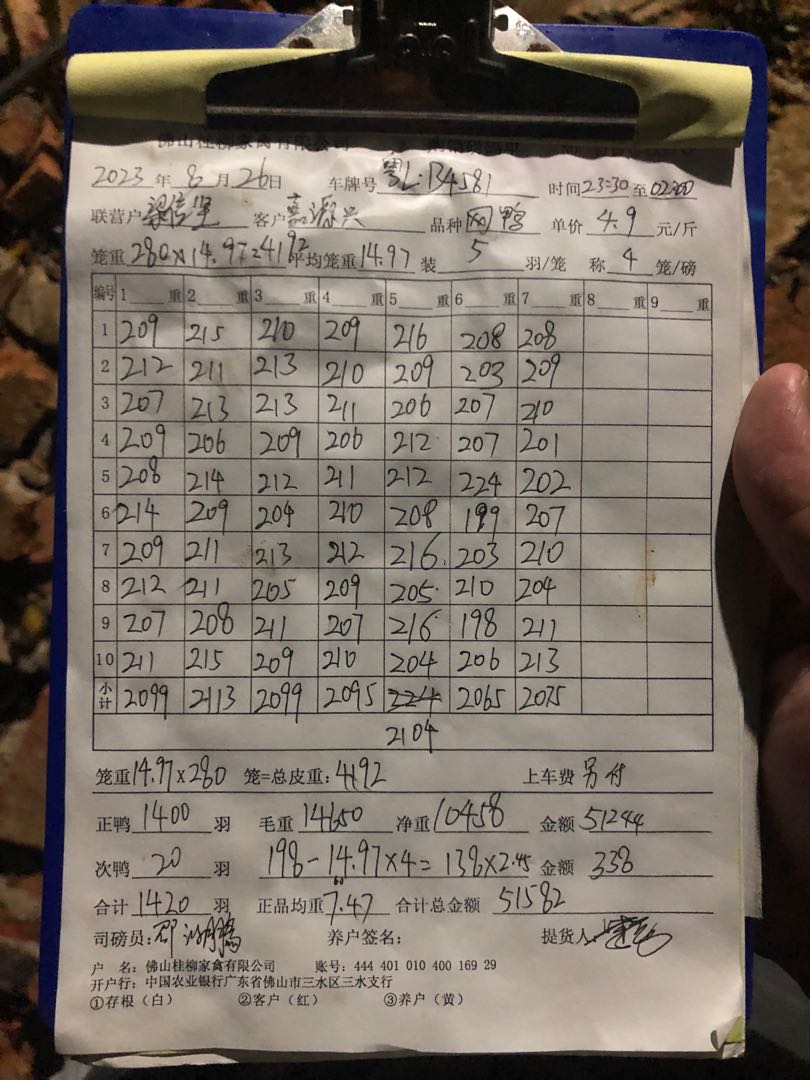 佛山桂柳家禽有限公司
2023年8月26日 车牌号 粤L·B4581 时间23:30至02:00
联营户 梁信坚 客户 嘉源兴 品种 网鸭 单价 4.9 元/斤
笼重 280×14.97=4192 平均笼重 14.97 装 5 羽/笼 称 4 笼/磅
编号 1 重 2 重 3 重 4 重 5 重 6 重 7 重 8 重 9 重
1 209 215 210 209 216 208 208
2 212 211 213 210 209 203 209
3 207 213 213 211 206 207 210
4 209 206 209 206 212 207 201
5 208 214 212 211 212 224 202
6 214 209 204 210 208 199 207
7 209 211 213 212 216 203 210
8 212 211 205 209 205 210 204
9 207 208 211 207 216 198 211
10 211 215 209 210 204 206 213
小计 2099 2113 2099 2095 2065 2075
2104
笼重14.97×280 笼=总皮重:4192 上车费 另付
正鸭 1400 羽 毛重 14650 净重 10458 金额 51244
次鸭 20 羽 198-14.97×4=138×2.45 金额 338
合计 1420 羽 正品均重 7.47 合计总金额 51582
司磅员: 养户签名: 提货人:
户 名:佛山桂柳家禽有限公司 账号:444 401 010 400 169 29
开户行:中国农业银行广东省佛山市三水区三水支行
①存根(白) ②客户(红) ③养户(黄)